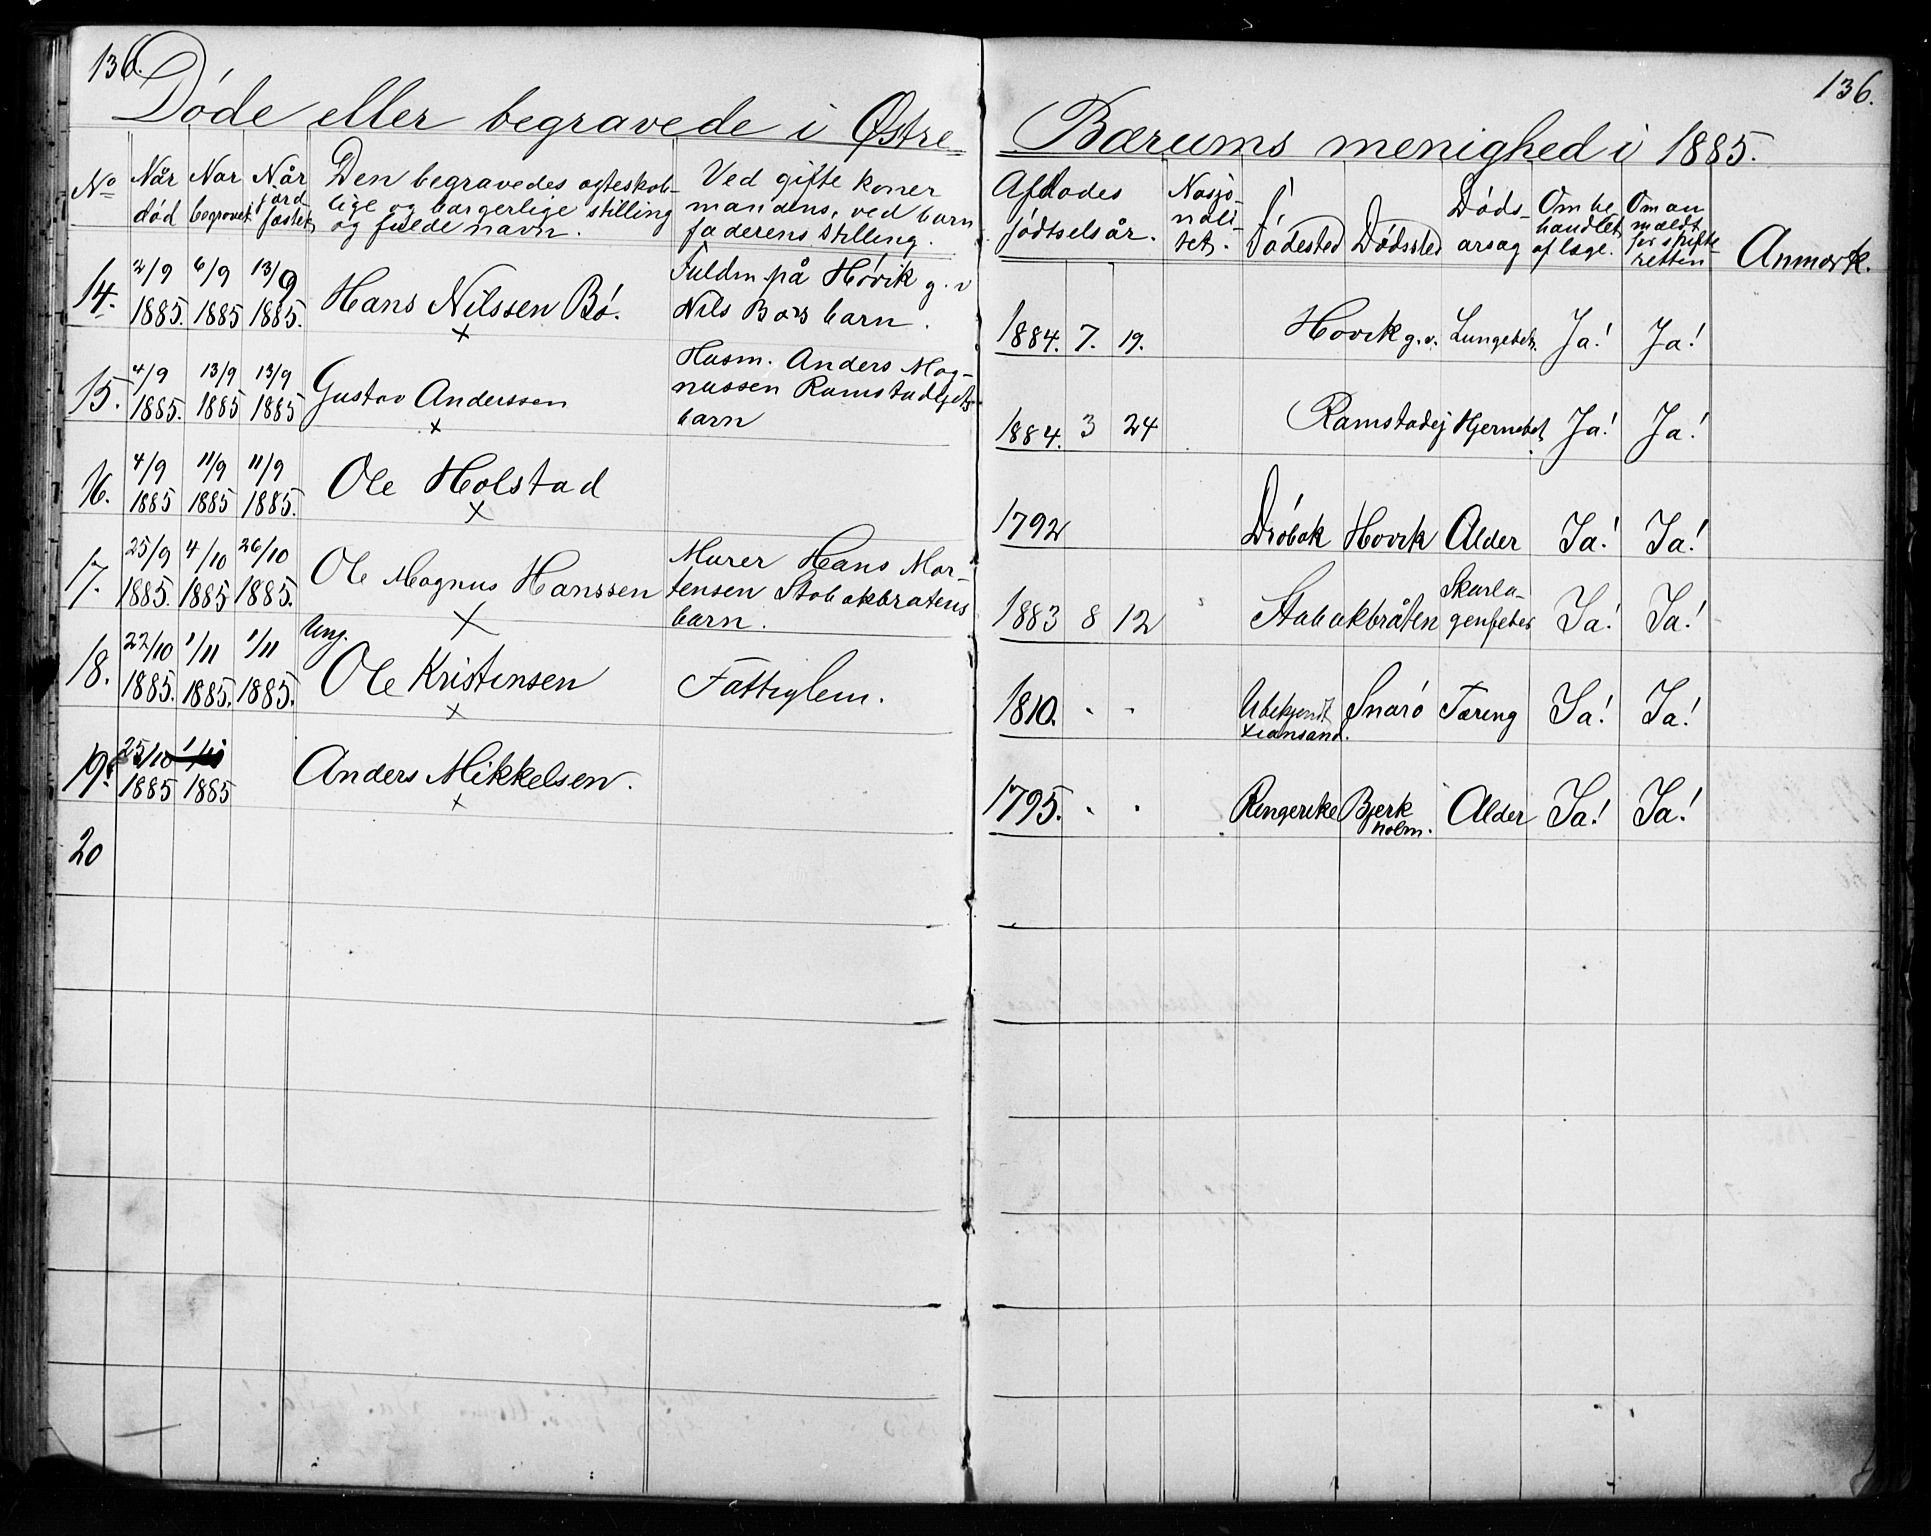 136.
136.
Døde eller begravede i Østre Bærums menighed i 1885.
No
Når død
Nor begravet
Når jord fæstet
Den begravedes ægteskab-
lige og borgerlige stilling
og fulde navn.
Ved gifte koner
mandens, ved barn
faderens stilling.
Afdødes
fødtselsår.
Nasjo-
nali-
tet.
Fødested
Dødssted
Døds-
årsag
Om be
handlet
af læge.
Om an
mældt
for skifte
retten
Anmærk.
14. 2/9 1885. 6/9 1885 13/9 1885.
Hans Nilssen Bø.
x
Fuldm på Høvik g. v
Nils Bøes barn.
1884. 7. 19. Høvik g.v. Lungebet. Ja! Ja!
15. 4/9 1885. 13/9 1885 13/9 1885
Gustav Anderssen
x
Husm. Anders Mag-
nussen Ramstadejets
barn
1884. 3 24 Ramstadej Hjernebet. Ja! Ja!
16. 4/9 1885 11/9 1885 11/9 1885.
Ole Holstad
x
1792 Drøbak Høvik Alder Ja! Ja!
17. 25/9 1885. 4/10 1885 26/10 1885.
Ole Magnus Hanssen
x
Murer Hans Mor-
tensen Stabækbråtens
barn.
1883 8 12 Stabækbråten Skarla-
genfeber Ja! Ja!
18. 22/10 1885. 1/11 1885. 1/11 1885.
Ung.
Ole Kristensen
x
Fattiglem.
1810. " " Ubekjendt Snarø Tæring Ja! Ja!
xiansand.
19. 25/10 1885 1885
Anders Mikkelsen.
x
1795. " " Ringerike Bjerk
holm. Alder Ja! Ja!
20